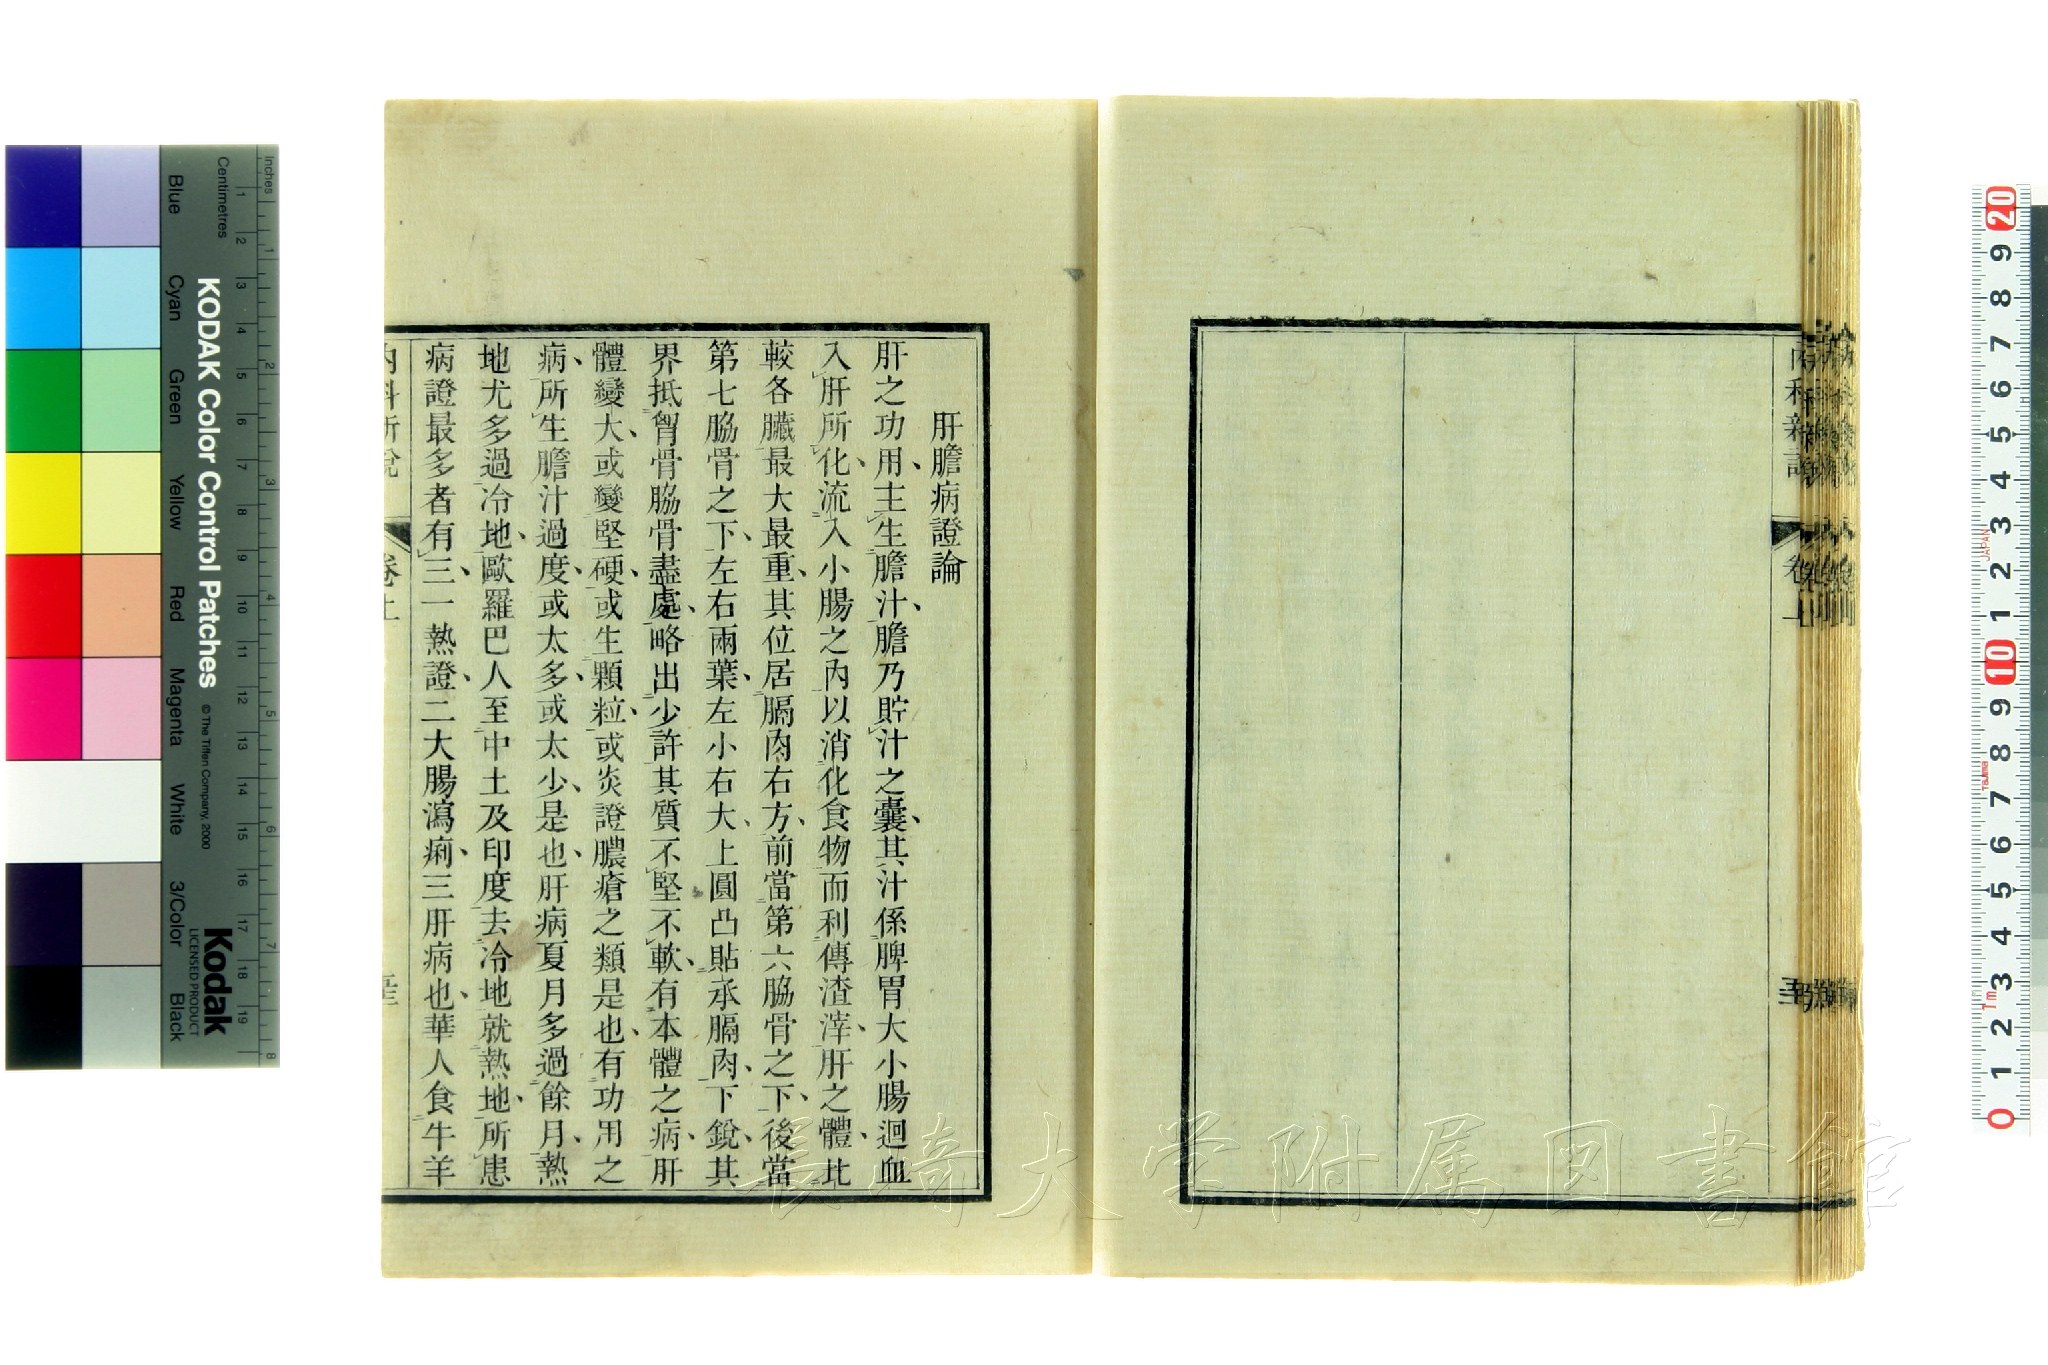 肝膽病證論
肝之功用主生膽汁膽乃貯汁之囊其汁係脾胃大小腸迴血
入肝所化流入小腸之內以消化食物而利傳渣滓肝之體比
較各臟最大最重其位居膈肉右方前當第六脇骨之下後當
第七脇骨之下左右兩葉左小右大上圓凸貼承膈肉下銳其
界抵胷骨脇骨盡處略出少許其質不堅不軟有本體之病肝
體變大或變堅硬或生顆粒或炎證膿瘡之類是也有功用之
病所生膽汁過度或太多或太少是也肝病夏月多過餘月熱
地尤多過冷地歐羅巴人至中土及印度去冷地就熱地所患
病證最多者有三一熱證二大腸瀉痢三肝病也華人食牛羊
內科新說
卷上
內科新說
卷上
長崎大学附属図書館
KODAK Color Control Patches
© The Tiffen Company, 2000
Kodak
LICENSED PRODUCT
Inches
1 2 3 4 5 6 7 8
Centimetres
1 2 3 4 5 6 7 8 9 10 11 12 13 14 15 16 17 18 19
Blue
Cyan
Green
Yellow
Red
Magenta
White
3/Color
Black
20 9 8 7 6 5 4 3 2 1 10 9 8 7 6 5 4 3 2 1 0
JAPAN
Tajima
Tm